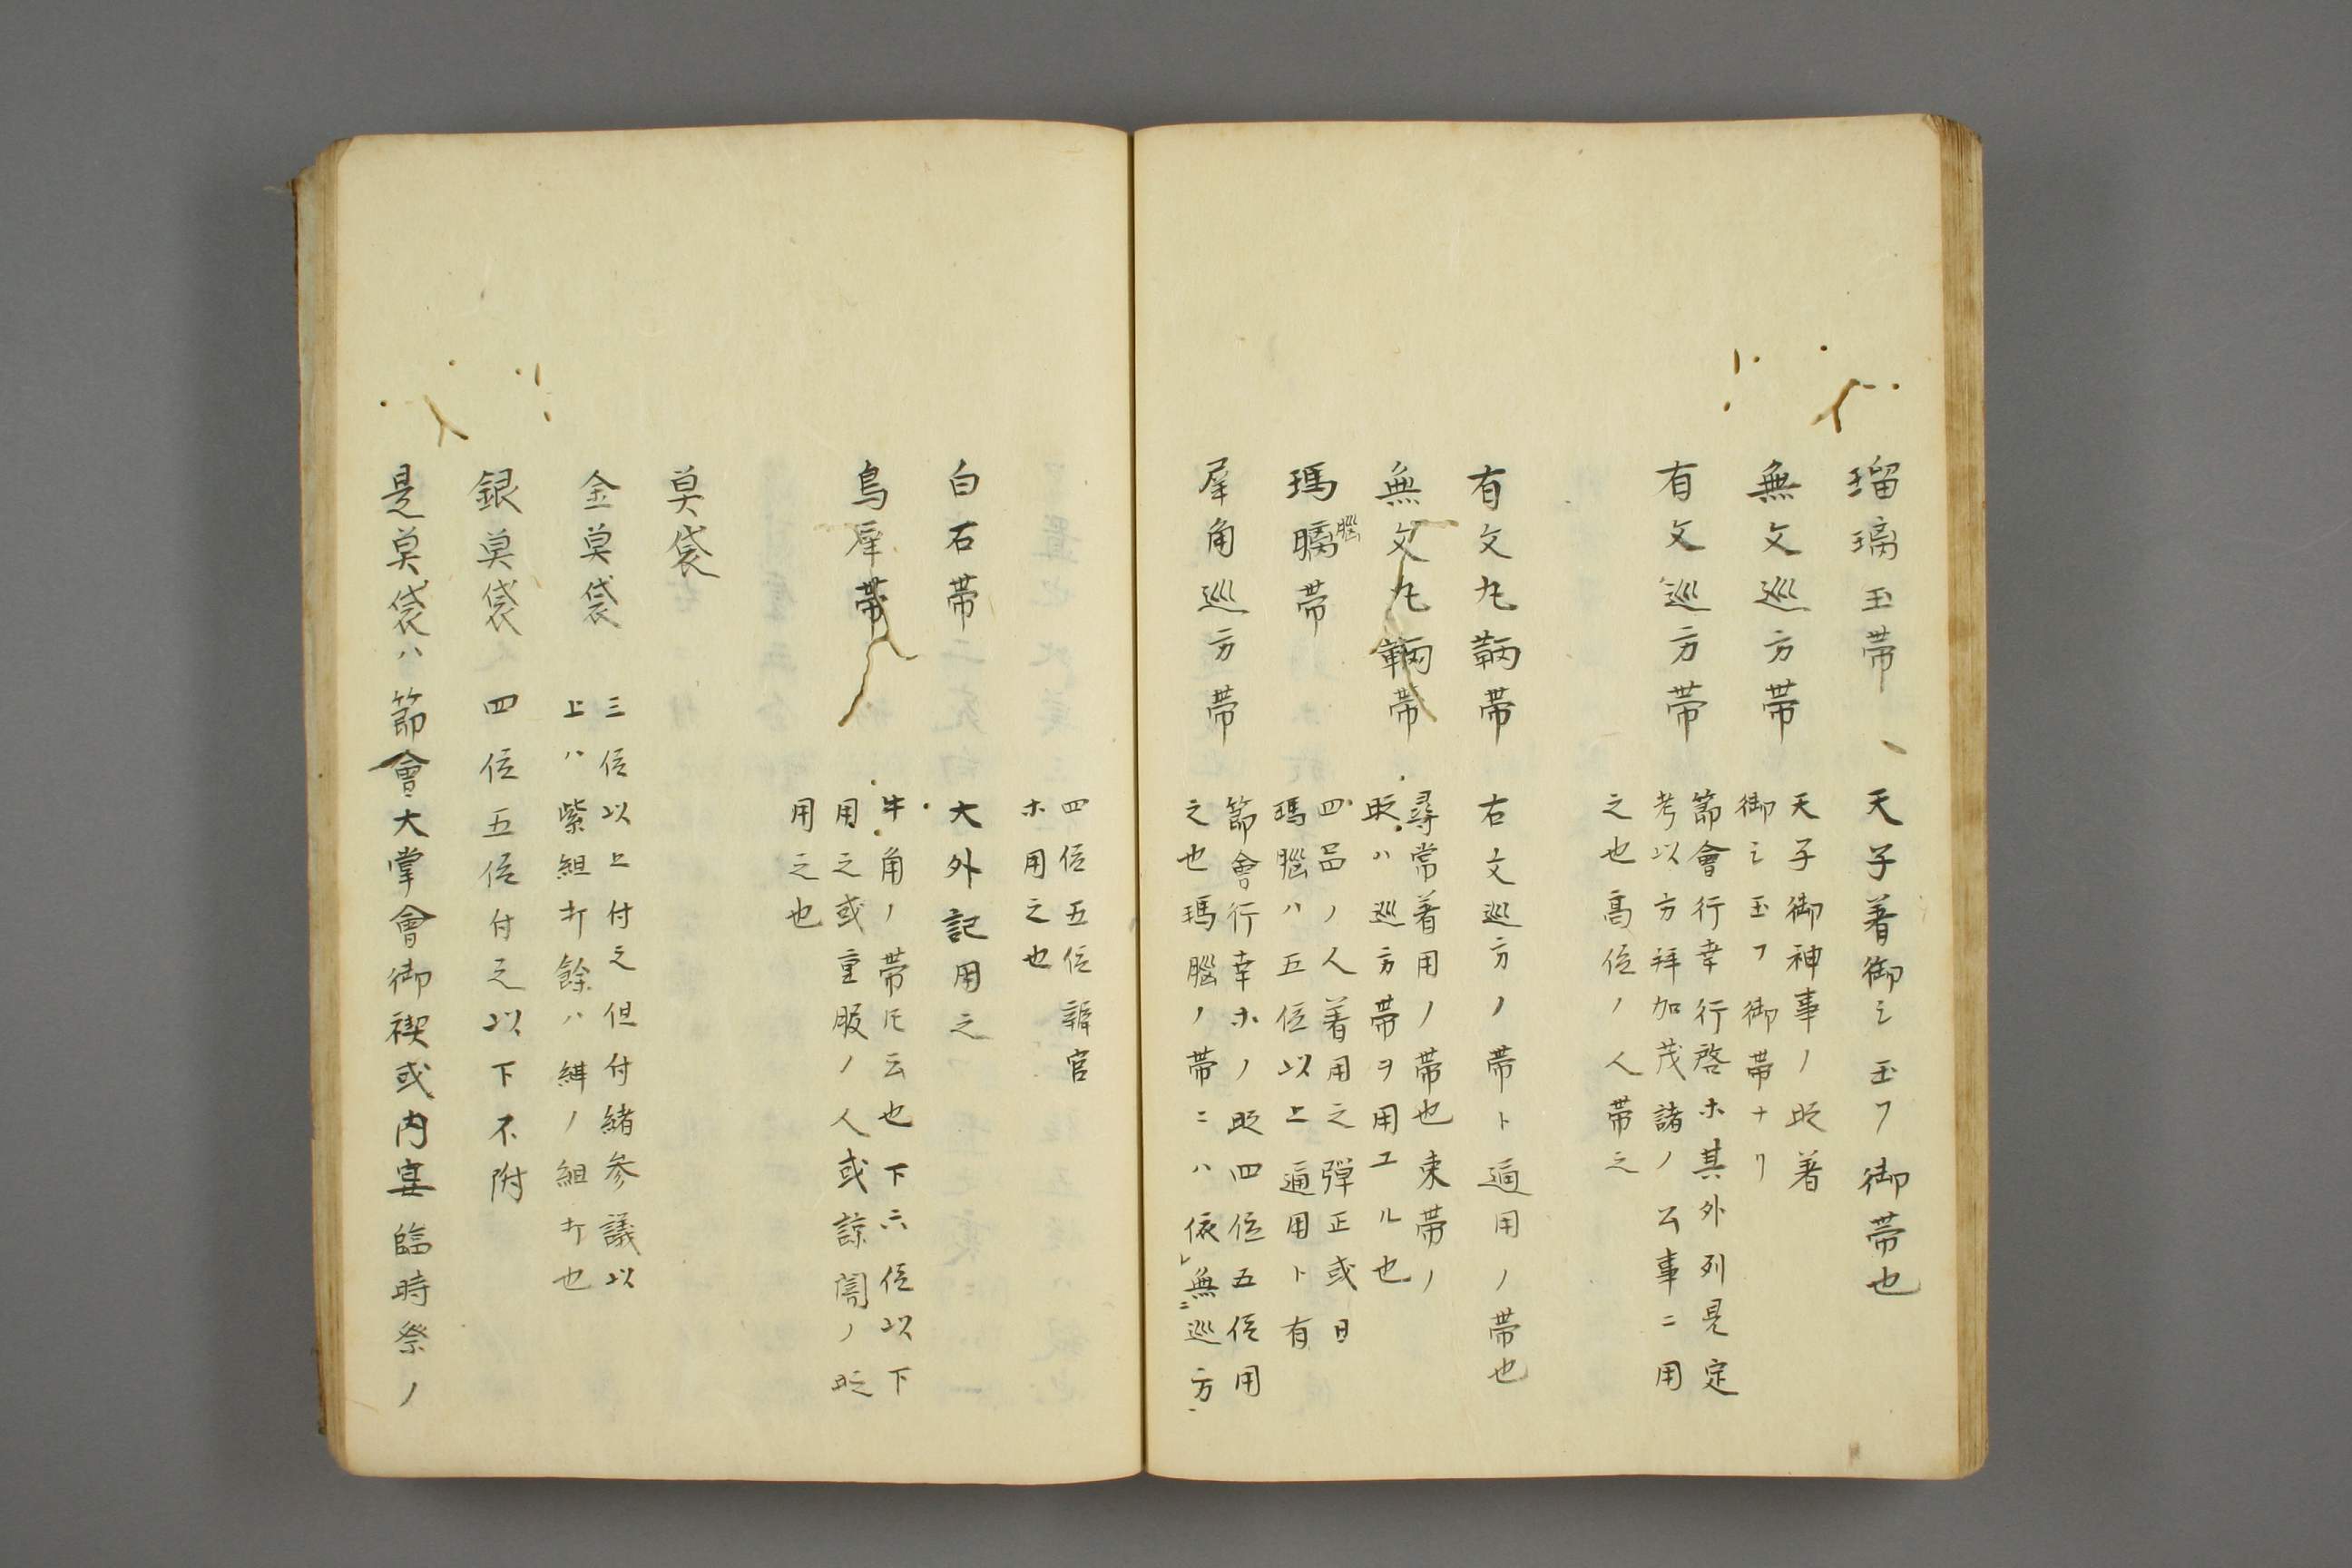 瑠璃玉帯　天子著御シ玉フ御帯也
無文巡方帯　天子御神事ノ時著
御シ玉フ御帯ナリ
有文巡方帯　節會行幸行啓ホ其外列見定
考以方拜加茂諸ノ公事ニ用
之也高位ノ人帯之
有文丸鞆帯　右文巡方ノ帯ト通用ノ帯也
無文丸鞆帯　尋常著用ノ帯也束帯ノ
時ハ巡方帯ヲ用ユル也
瑪瑙帯　四品ノ人著用之彈正或日
瑪腦ハ五位以上通用ト有
犀角巡方帯　節會行幸ホノ時四位五位用
之也瑪腦ノ帯ニハ依レ無ニ巡方一
四位五位辨官
ホ用之也
白石帯　大外記用之
烏犀帯　牛角ノ帯トモ云也下六位以下
用之或重服ノ人或諒闇ノ時
用之也
魚袋
金魚袋　三位以上付之但付緒参議以
上ハ紫組打餘ハ縹ノ組打也
銀魚袋　四位五位付之以下不附
是魚袋ハ節會大掌會御禊或内宴臨時祭ノ